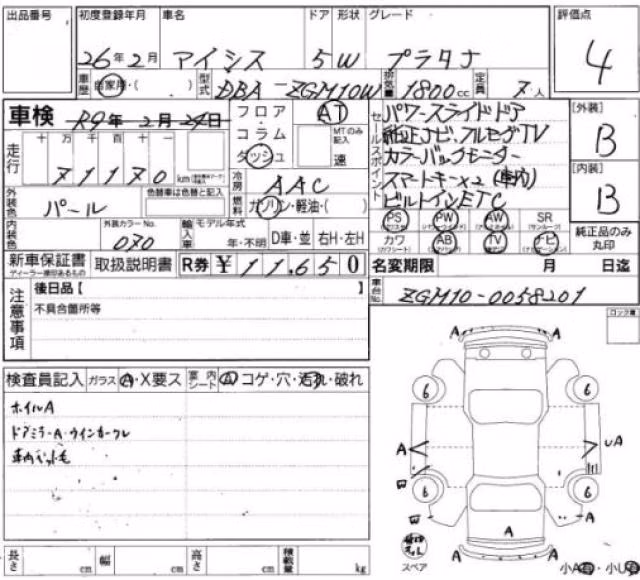 出品番号 初度登録年月 車名 ドア 形状 グレード 評価点
26年2月 アイシス 5 W プラタナ 4
車歴 自家用・( ) 型式 DBA-ZGM10W 排気量 1800cc 定員 7人
車検 R9年2月24日 フロア AT
コラム MTのみ記入
ダッシュ 速
セールスポイント パワースライドドア
純正ナビ.フルセグTV
カラーバックモニター
スマートキーx2(車内)
ビルトインETC
[外装] B
[内装] B
走行 十 万 千 百 十 一
71170 km
冷房 AAC
外装色 パール 色替車は色替と記入
燃料 ガソリン・軽油・( )
PS PW AW SR (サンルーフ)
カワ AB TV ナビ
純正品のみ丸印
内装色 外装カラーNo. 070 輸入車 モデル年式 年・不明 D車・並 右H・左H
新車保証書 ディーラー捺印あるもの 取扱説明書 R券 ¥11,650
名変期限 月 日迄
車台No. ZGM10-0058201
注意事項 後日品【 】
不具合箇所等
コック車
検査員記入 ガラス A・X要ス 室内シート A コゲ・穴・汚れ・破れ
ホイルA
ドアミラーA・ウインカーワレ
車内ペット毛
A A
6 6
A UA
6 6
A
A A A A
スペア
小A 小U
長さ cm 幅 cm 高さ cm 積載量 kg